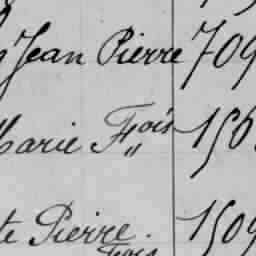 Jean Pierre 709
Marie F,,ois 156
te Pierre. 1509
F,,ois